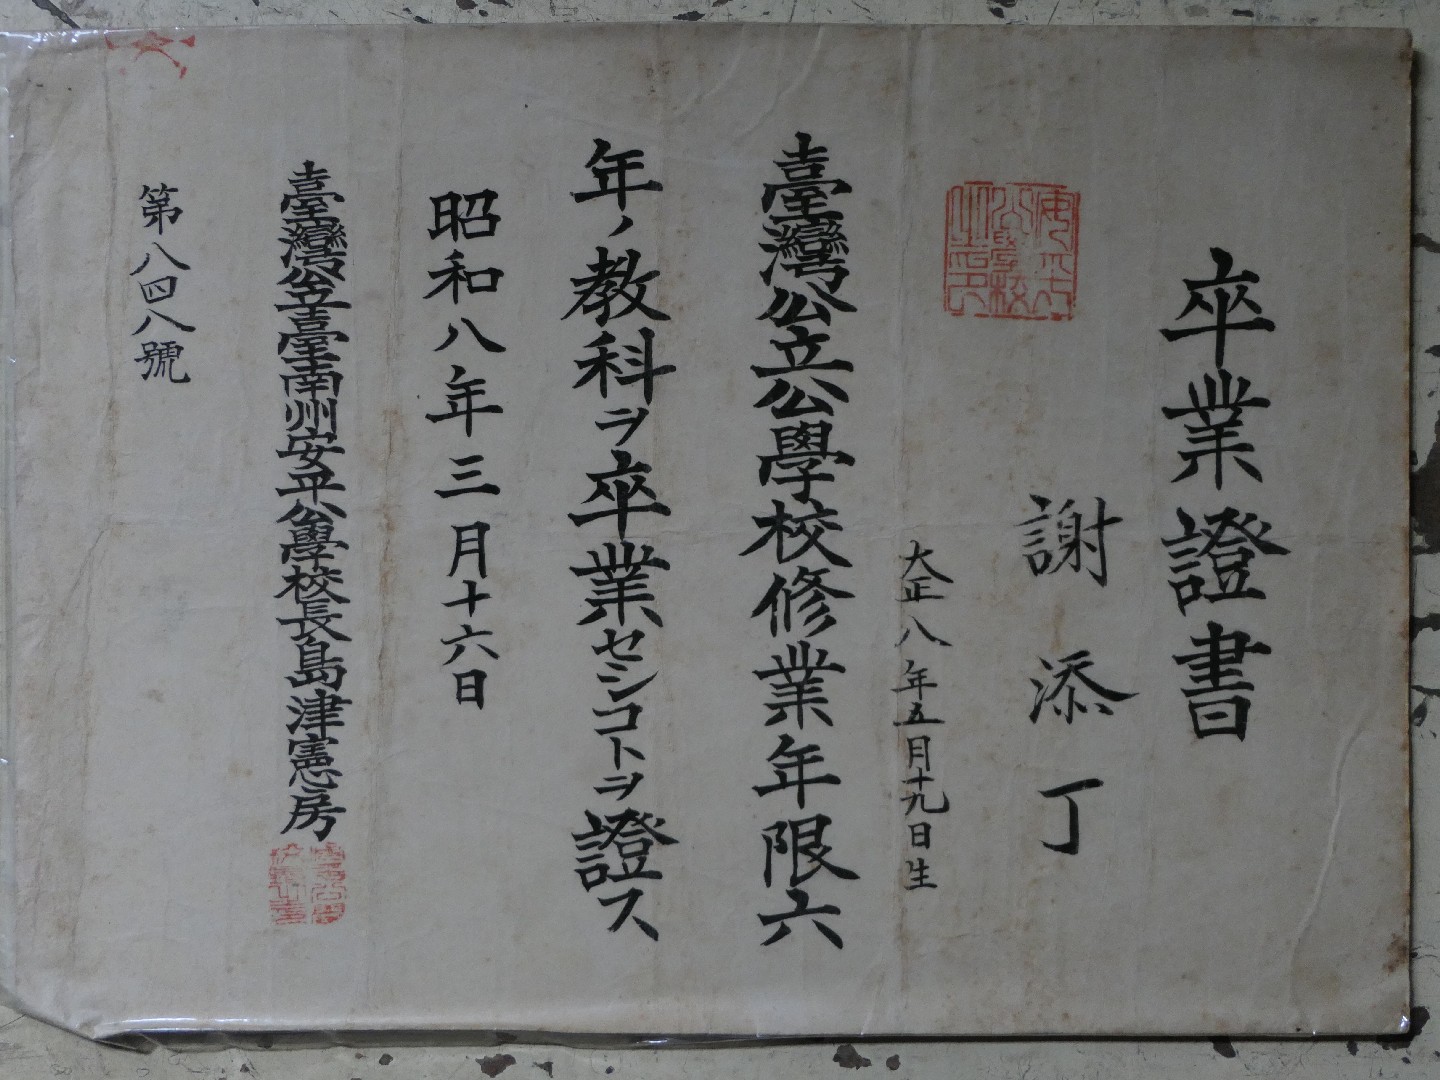 卒業證書
謝添丁
大正八年五月十九日生
臺灣公立公學校修業年限六
年ノ教科ヲ卒業セシコトヲ證ス
昭和八年三月十六日
臺灣公立臺南州安平公學校長島津憲房
第八四八號